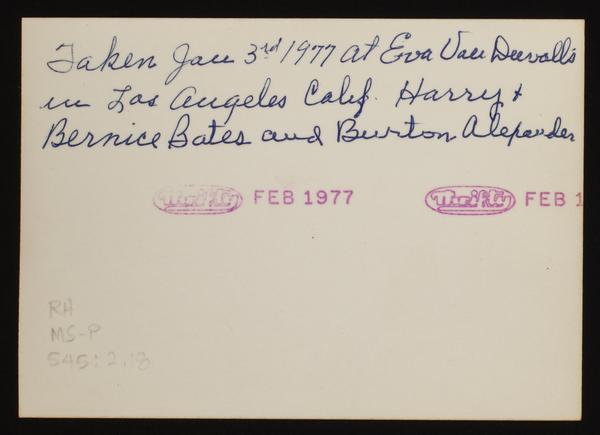 Taken Jan 3rd 1977 at Eva Van Duvall's
in Los Angeles Calif. Harry +
Bernice Bates and Burton Alexander
Thrifty FEB 1977 Thrifty FEB 1
RH
MS-P
545:2.18